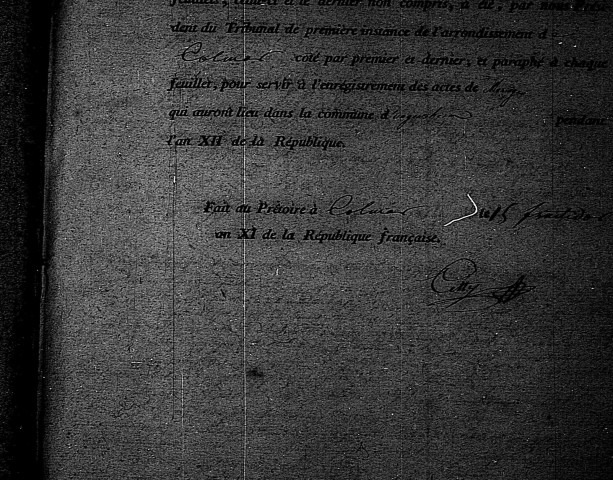 feuillets, celui-ci et le dernier non compris, a été, par nous Prési-
dent du Tribunal de première instance de l'arrondissement d
Colmar coté par premier et dernier, et paraphé à chaque
feuillet, pour servir à l'enrégistrement des actes de
qui auront lieu dans la commune d pendant
l'an XII de la République.
Fait au Prétoire à Colmar le fructidor
an XI de la République française.